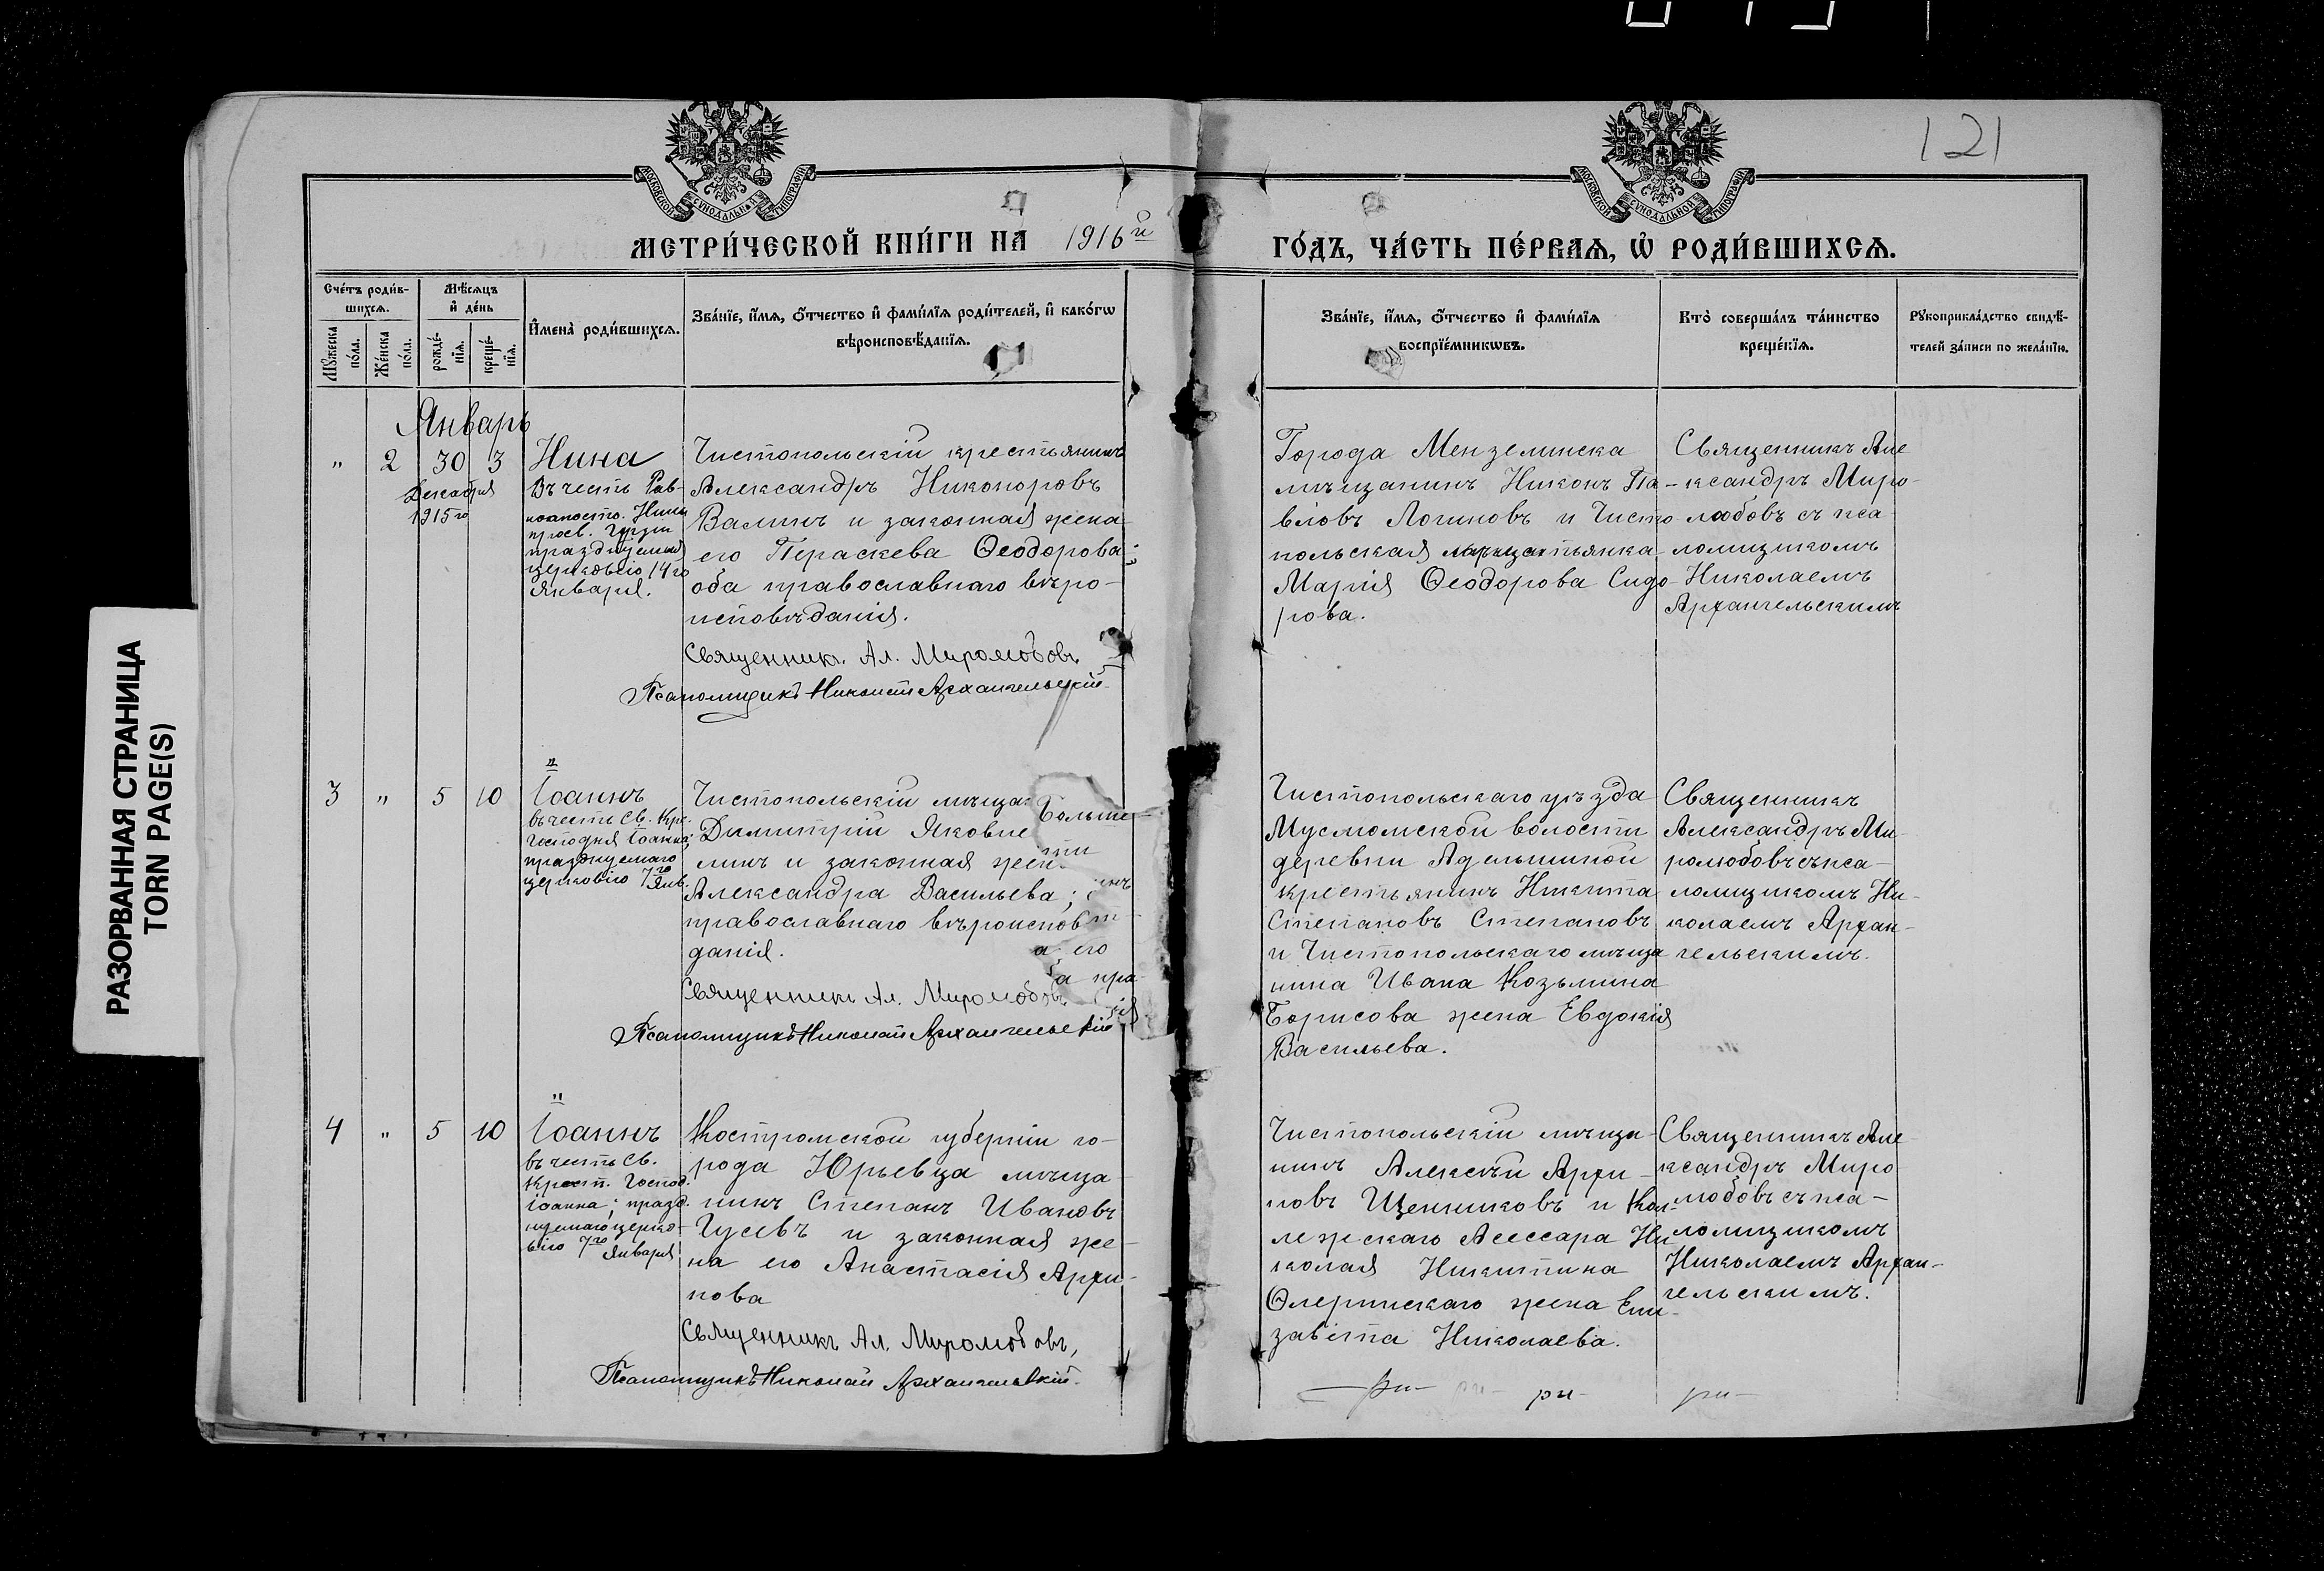 121
МОСКОВСКОЙ СѴНОДАЛЬНОЙ ТИПОГРАФІИ
МОСКОВСКОЙ СѴНОДАЛЬНОЙ ТИПОГРАФІИ
МЕТРИ́ЧЕСКОЙ КНИ́ГИ НА 1916й
ГО́ДЪ, ЧА́СТЬ ПЕ́РВАѦ, Ѡ РОДИ́ВШИХСѦ.
Сче́тъ роди́в-
шихсѧ.
Мꙋ́жеска
по́ла.
Же́нска
по́ла.
Мѣ́сѧцъ
и҆ де́нь
рожде́-
нїѧ.
креще́-
нїѧ.
И҆мена̀ роди́вшихсѧ.
Зва́нїе, и҆́мѧ, ѻ҆́тчество и҆ фами́лїѧ роди́телей, и҆ како́гѡ
вѣроисповѣ́данїѧ.
Зва́нїе, и҆́мѧ, ѻ҆́тчество и҆ фами́лїѧ
воспрїе́мникѡвъ.
Кто̀ соверша́лъ та́инство
креще́нїѧ.
Рꙋкоприкла́дство свидѣ́-
телей за́писи по жела́нїю.
Январь
" 2 30 3
Декабря
1915го
Нина
Въ честь Рав-
ноапосто. Нины
просв. Грузи
празднуемыя
церковію 14го
Января.
Чистопольскій крестьянинъ
Александръ Никоноровъ
Валинъ и законная жена
его Параскева Ѳеодорова;
оба православнаго вѣро-
исповѣданія.
Священник. Ал. Миролюбовъ
Псаломщикъ Николай Архангельскій
Города Мензелинска
мѣщанинъ Никонъ Па-
вловъ Логиновъ и Чисто
польская
Марія Ѳеодорова Сидо-
рова.
Священникъ Але
ксандръ Миро-
любовъ съ пса
ломщикомъ
Николаемъ
Архангельскимъ
3 " 5 10
"
Іоаннъ
въ честь Св. Кре.
Господня Іоанна;
празднуемаго
церковію 7го Янв.
Чистопольскій мѣща
Димитрій Яковле
линъ и законная жен
Александра Васильева;
православнаго вѣроисповѣ
данія.
Больше
инъ
а; его
а пра-
ія
Священникъ Ал. Миролюбовъ
Псаломщикъ Николай Архангельскій
Чистопольскаго уѣзда
Муслюмской волости
деревни Адельшиной
крестьянинъ Никита
Степановъ Степановъ
и Чистопольскаго мѣща
нина Ивана Козьмина
Борисова жена Евдокія
Васильева.
Священникъ
Александръ Ми-
ролюбовъ съ пса-
ломщикомъ Ни-
колаемъ Архан-
гельскимъ.
4 " 5 10
"
Іоаннъ
въ честь Св.
Крест. Господ.
Іоанна; празд.
нуемаго церко-
вію 7го Января
Костромской губерніи го-
рода Юрьевца мѣща
нинъ Степанъ Ивановъ
Гусевъ и законная же-
на его Анастасія Архи-
пова
Священникъ Ал. Миролюбовъ,
Псаломщикъ Николай Архангельскій.
Чистопольскій мѣща-
нинъ Алексѣй Архи-
повъ Щенниковъ и Кол-
лежскаго Ассесара Ни
колая Никитина
жена Ели-
завета Николаева.
Священникъ Але-
ксандръ Миро
любовъ съ пса-
ломщикомъ
Николаемъ Архан-
гельскимъ.
ри- ри- ри-
РАЗОРВАННАЯ СТРАНИЦА
TORN PAGE(S)